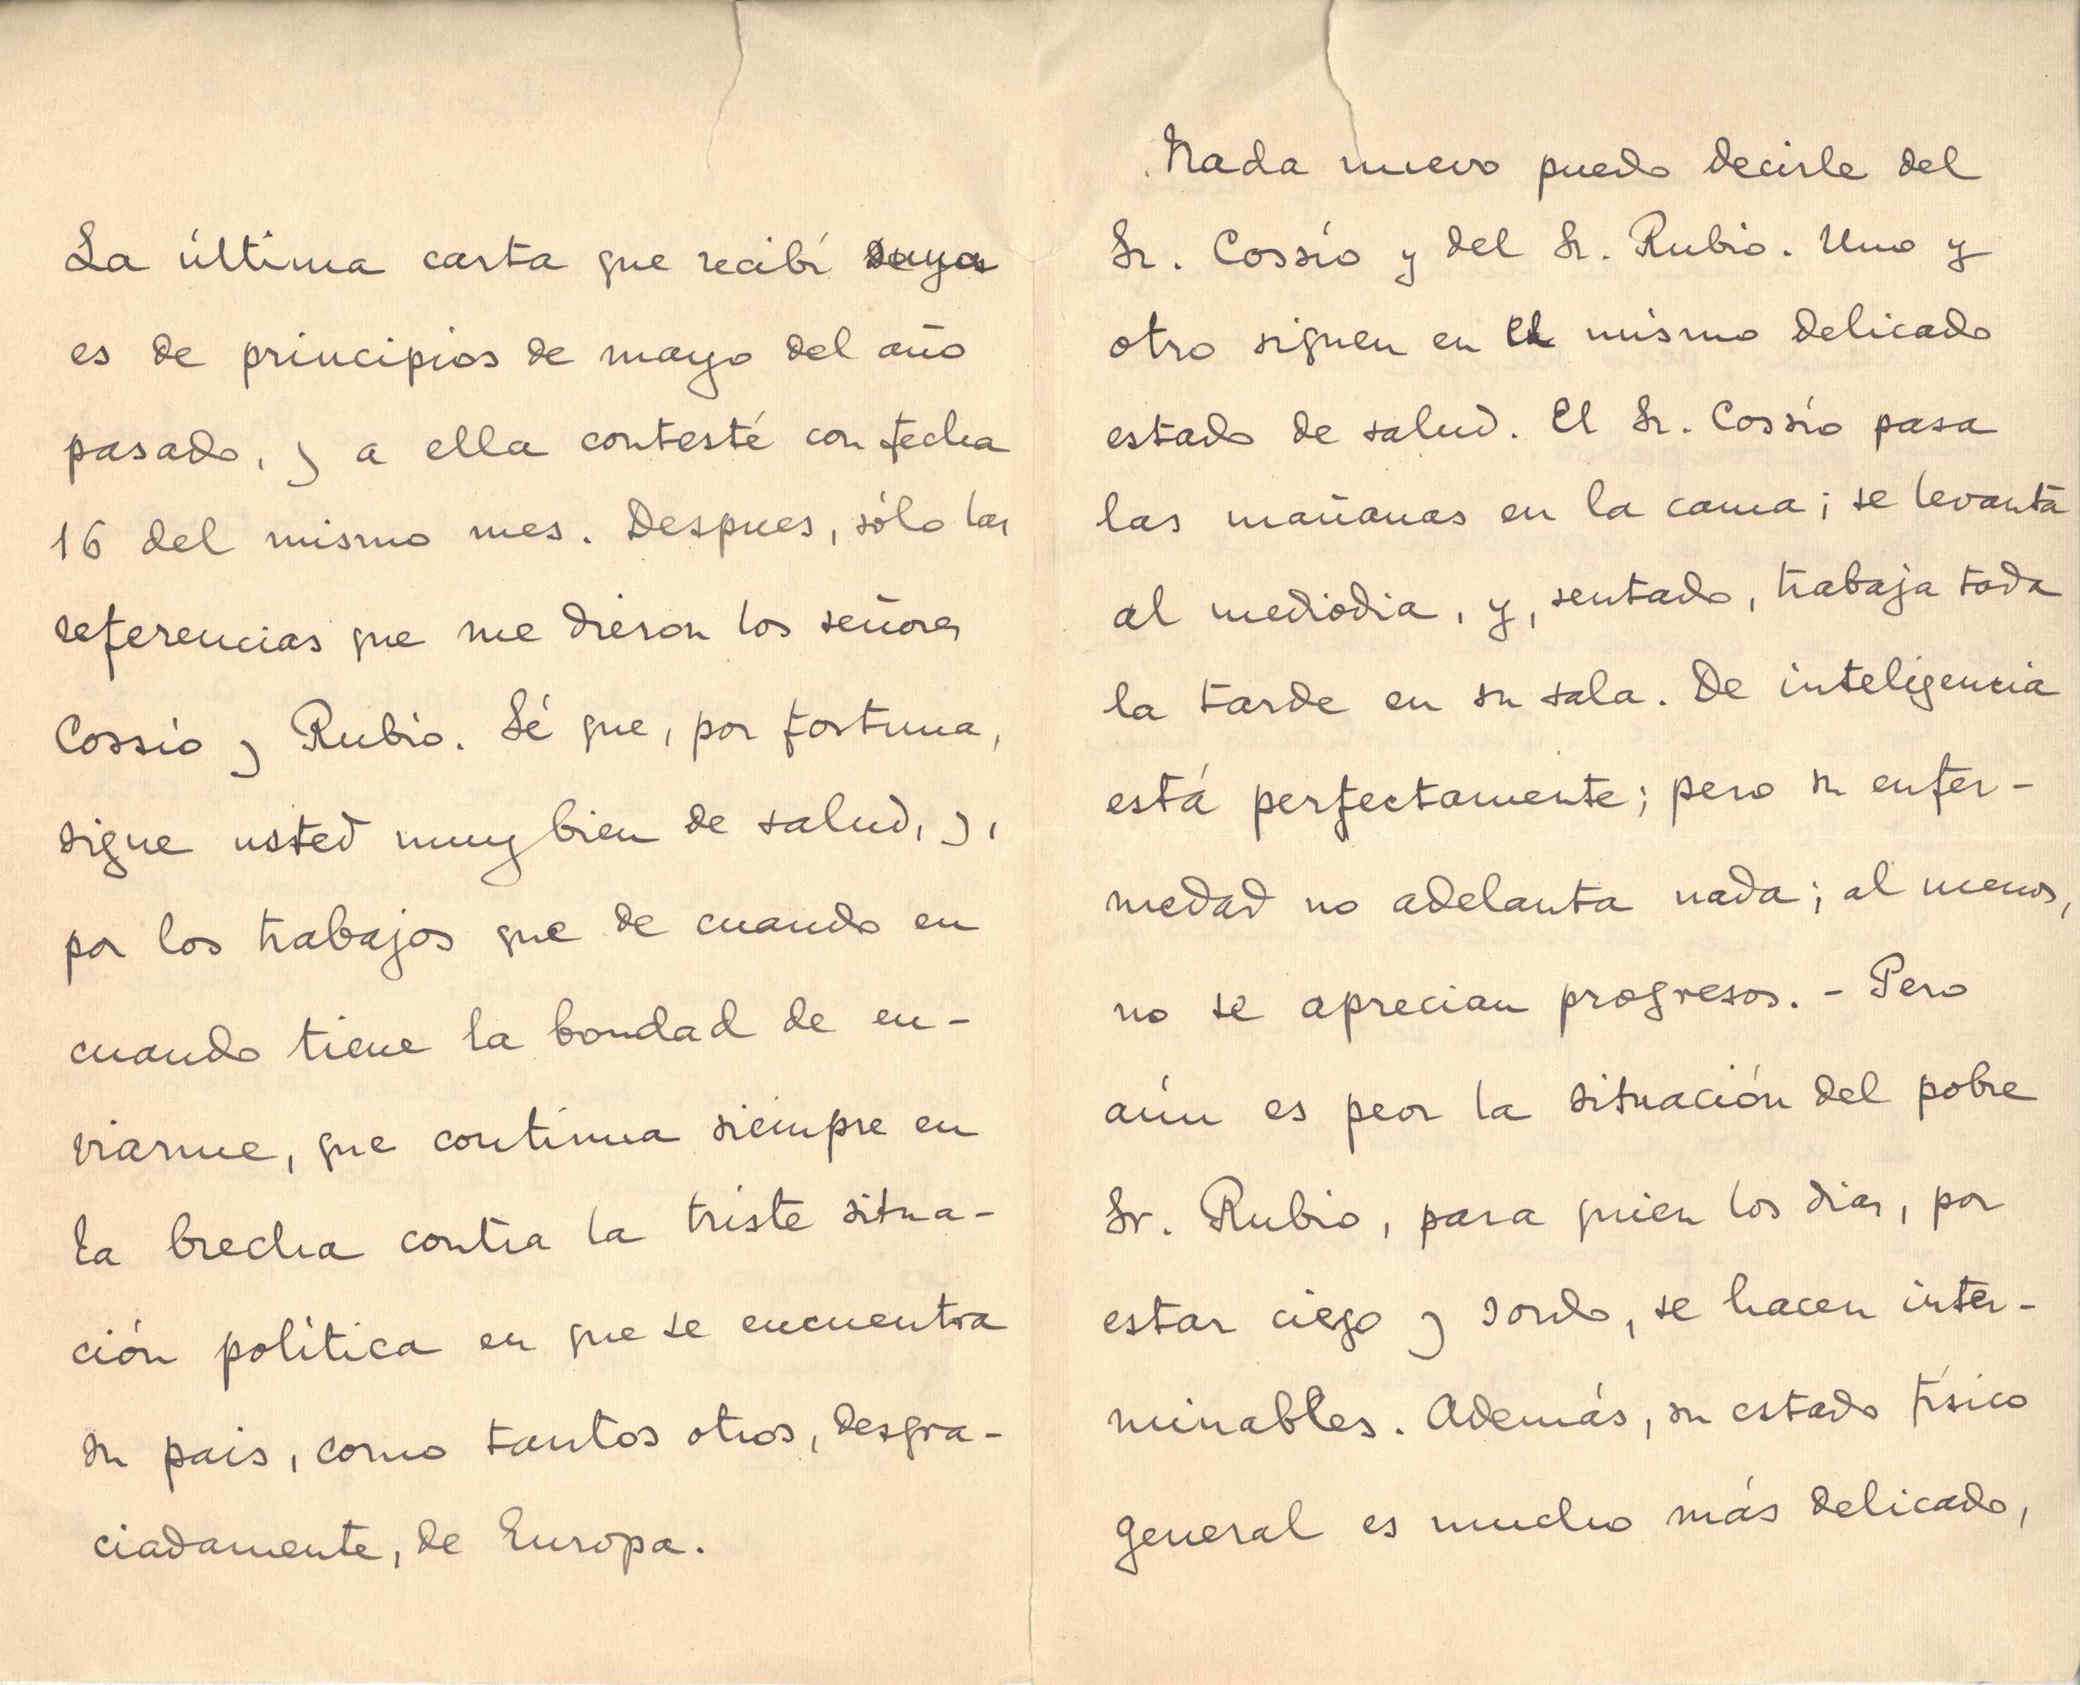 La última carta que recibí suya
es de principios de mayo del año
pasado, y a ella contesté con fecha
16 del mismo mes. Despues, sólo las
referencias que me dieron los señores
Cossío y Rubio. Sé que, por fortuna,
sigue usted muy bien de salud, y,
por los trabajos que de cuando en
cuando tiene la bondad de en-
viarme, que continua siempre en
la brecha contra la triste situa-
ción política en que se encuentra
su pais, como tantos otros, desgra-
ciadamente, de Europa.
Nada nuevo puedo decirle del
Sr. Cossío y del Sr. Rubio. Uno y
otro siguen en el mismo delicado
estado de salud. El Sr. Cossío pasa
las mañanas en la cama; se levanta
al mediodia, y, sentado, trabaja toda
la tarde en su sala. De inteligencia
está perfectamente; pero su enfer-
medad no adelanta nada; al menos,
no se aprecian progresos. - Pero
aún es peor la situación del pobre
Sr. Rubio, para quien los dias, por
estar ciego y sordo, se hacen inter-
minables. Además, su estado físico
general es mucho más delicado,